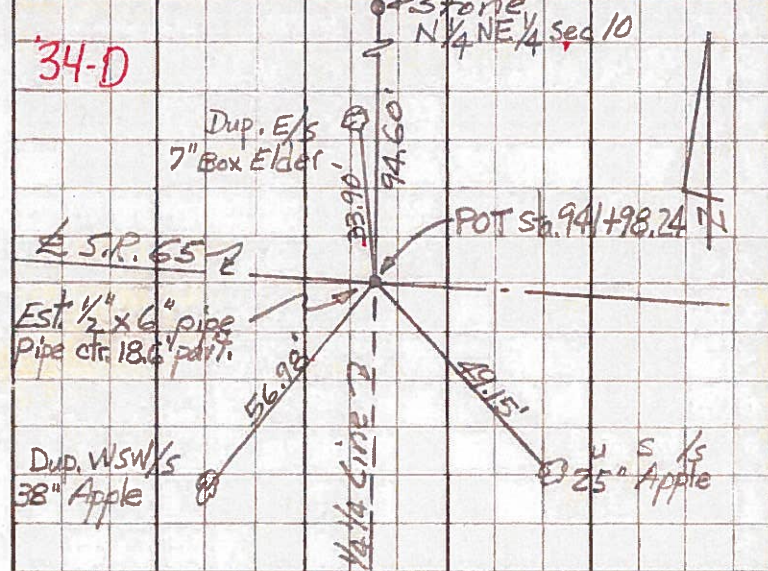 Stone
N 1/4 NE 1/4 Sec 10
34-D
Dup. E/s
7" Box Elder
33.90'
94.60'
POT Sta. 941+98.24
N
℄ S.R. 65
Est. 1/2" x 6" pipe
Pipe ctr. 18.6' pav't.
56.98'
49.15'
Dup. WSW/s
38" Apple
1/4 1/4 Line
u s /s
25" Apple